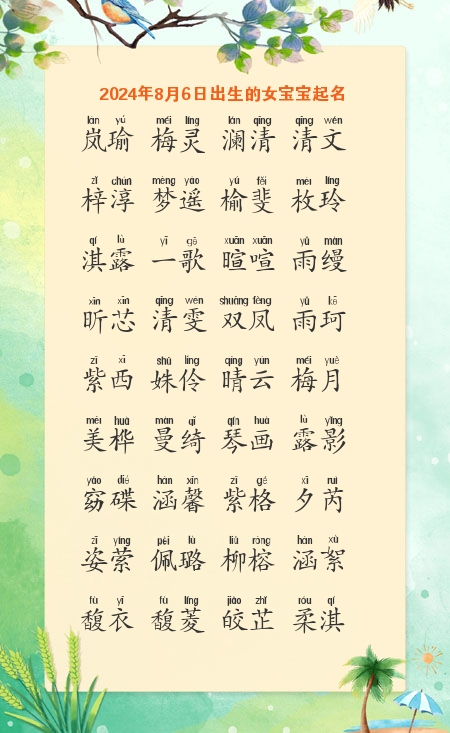 2024年8月6日出生的女宝宝起名
lán yú méi líng lán qīng qīng wén
岚瑜 梅灵 澜清 清文
zǐ chún mèng yáo yú fěi méi líng
梓淳 梦遥 榆斐 枚玲
qí lù yī gē xuān xuān yǔ màn
淇露 一歌 暄喧 雨缦
xīn xīn qīng wén shuāng fèng yǔ kē
昕芯 清雯 双凤 雨珂
zǐ xī shū líng qíng yún méi yuè
紫西 姝伶 晴云 梅月
měi huà màn qǐ qín huà lù yǐng
美桦 曼绮 琴画 露影
yǎo dié hán xīn zǐ gé xī ruì
窈碟 涵馨 紫格 夕芮
zī yíng pèi lù liǔ róng hán xù
姿萦 佩璐 柳榕 涵絮
fù yī fù líng jiǎo zhǐ róu qí
馥衣 馥菱 皎芷 柔淇